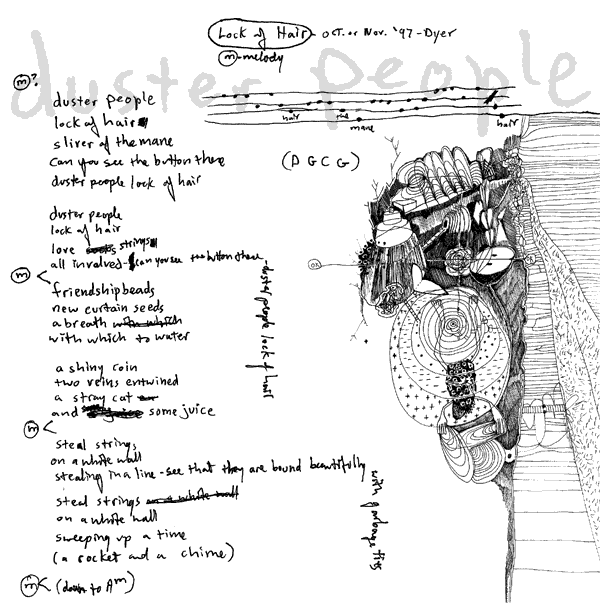 Lock of Hair - Oct. or Nov. '97 - Dyer
m - melody
duster people
m?
hair the mane hair
(D G C G)
duster people
lock of hair
sliver of the mane
Can you see the button there
duster people lock of hair
duster people
lock of hair
love strings
all involved - can you see the button there
m
friendship beads
new curtain seeds
a breath with which
with which to water
duster people lock of hair
a shiny coin
two veins entwined
a stray cat
and some juice
m
steal strings
on a white wall
stealing in a line - see that they are bound beautifully
with garbage ties
steal strings on a white wall
on a white wall
sweeping up a time
(a rocket and a chime)
m (down to Am)
on